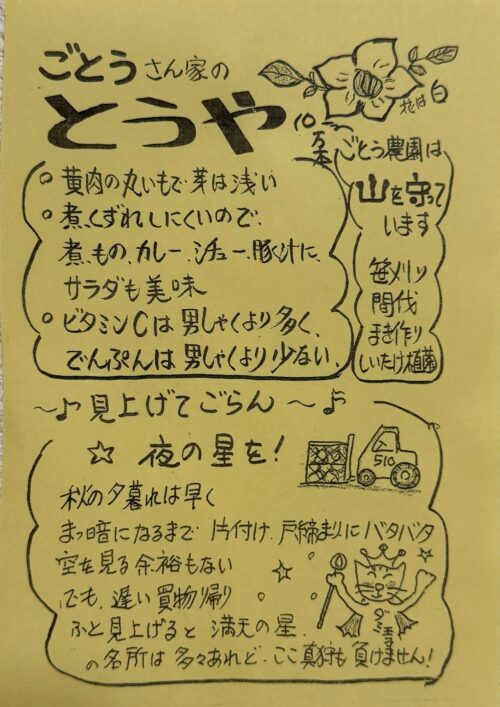 ごとうさん家の
とうや
花は白
10万本
○ 黄肉の丸いもで芽は浅い
○ 煮くずれしにくいので、
煮もの、カレー、シチュー、豚汁に、
サラダも美味
○ ビタミンCは男しゃくより多く、
でんぷんは男しゃくより少ない。
ごとう農園は、
山を守って
います
笹刈り
間伐
まき作り
しいたけ植菌
～♪見上げてごらん～♪
☆ 夜の星を!
510
秋の夕暮れは早く
まっ暗になるまで 片付け、戸締まりにバタバタ
空を見る余裕もない
でも、遅い買物帰り
ふと見上げると 満天の星。
の名所は多々あれど、ここ真狩も負けません!